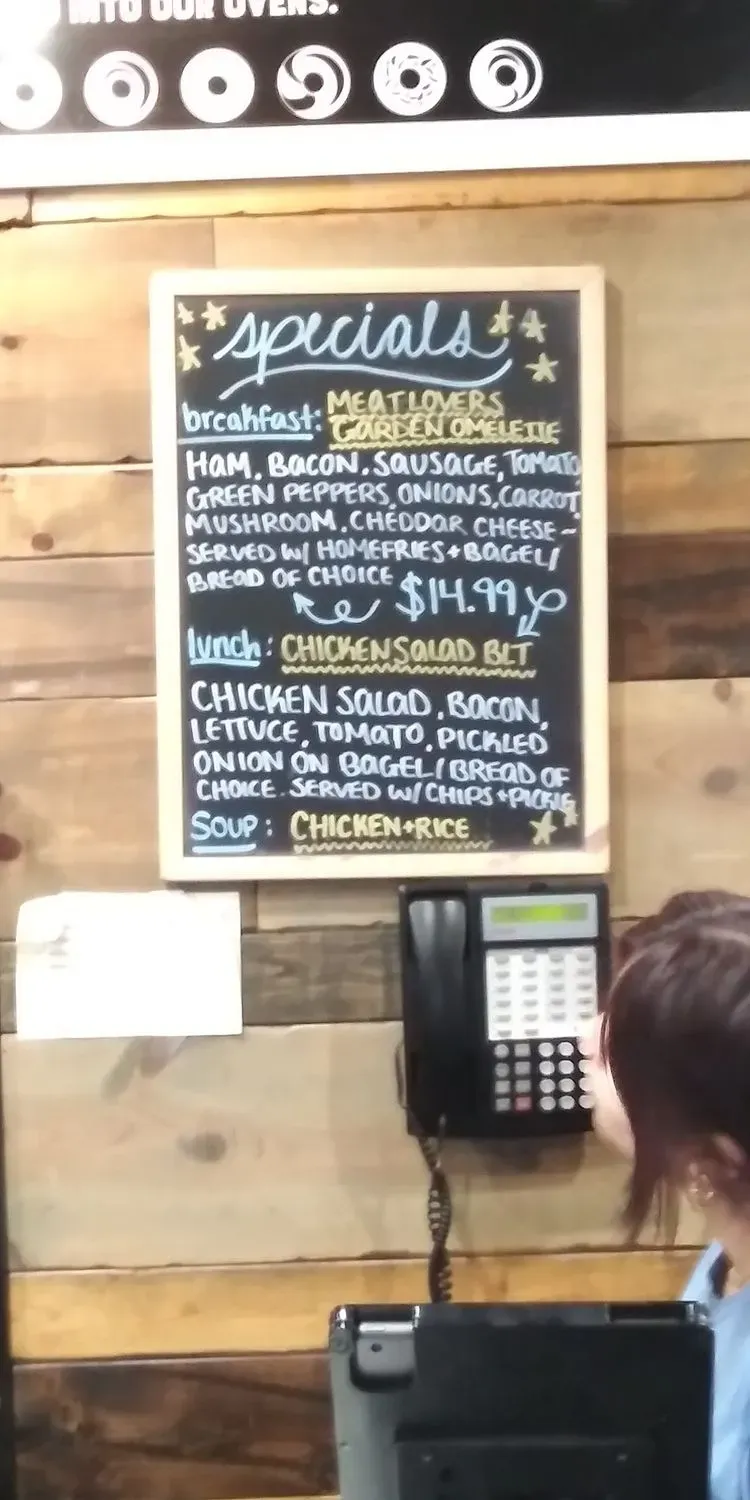 INTO OUR OVENS.
specials
breakfast: MEATLOVERS
GARDEN OMELETTE
HAM, BACON, SAUSAGE, TOMATO
GREEN PEPPERS, ONIONS, CARROT,
MUSHROOM, CHEDDAR CHEESE ~
SERVED W/ HOMEFRIES + BAGEL/
BREAD OF CHOICE $14.99
lunch: CHICKEN SALAD BLT
CHICKEN SALAD, BACON,
LETTUCE, TOMATO, PICKLED
ONION ON BAGEL/BREAD OF
CHOICE. SERVED W/ CHIPS + PICKLE
SOUP: CHICKEN + RICE